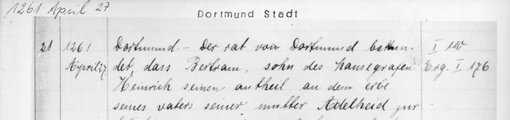 1261 April 27
Dortmund Stadt
21 1261 Dortmund – Der rat von Dortmund bekun- I 110
April 27 det, dass Bertram, sohn des hansegrafen Erg. I 176
Heinrich seinen antheil an dem erbe
seines vaters seiner mutter Adelheid zur